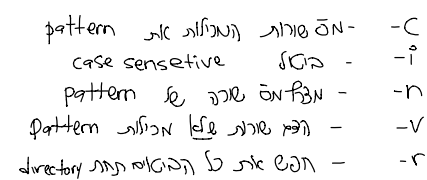 -c - מס' שורות המכילות את pattern
-i - ביטול case sensetive
-n - מצרף מס' שורה של pattern
-v - הדפס שורות שלא מכילות pattern
-r - חפש את כל הביטויים תחת directory